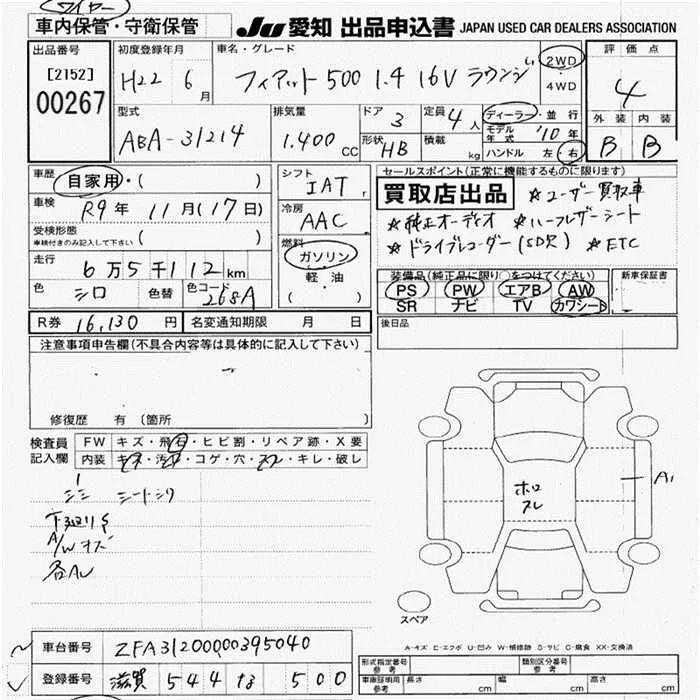 ワイヤー
車内保管・守衛保管
JU 愛知 出品申込書 JAPAN USED CAR DEALERS ASSOCIATION
出品番号
[2152]
00267
初度登録年月
H22 6月
車名・グレード
フィアット500 1.4 16V ラウンジ
2WD
・
4WD
評価点
4
外装 内装
B B
型式
ABA-31214
排気量
1.400 CC
ドア 3
形状 HB
定員 4人
積載 kg
ディーラー・並行
モデル年式 '10年
ハンドル 左・右
車歴 自家用・( )
車検 R9年 11月(17日)
受検形態
車検付きのみ記入して下さい ( )
走行 6万5千112km
色 シロ 色替 色コード 268A
シフト IAT
冷房 AAC
燃料
ガソリン
・
軽・油
( )
セールスポイント(正常に機能するものに限り)
買取店出品 ☆ユーザー買取車
☆純正オーディオ ☆ハーフレザーシート
☆ドライブレコーダー(SD欠) ☆ETC
装備品(純正品に限り○をつけてください)
新車保証書
PS PW エアB AW
SR ナビ TV カワシート
R券 16,130円 名変通知期限 月 日
後日品
注意事項申告欄(不具合内容等は具体的に記入して下さい)
修復歴 有(箇所
検査員記入欄
FW キズ・飛石・ヒビ割・リペア跡・X要
内装 キズ・汚れ・コゲ・穴・スレ・キレ・破レ
シミ シートシワ
下廻りS
A/Wキズ
各AU
ホロ
スレ
A1
スペア
A-キズ E-エクボ U-凹み W-補修跡 S-サビ C-腐食 XX-交換済
車台番号 ZFA31200000395040
登録番号 滋賀 544 は 500
形式指定番号
参考
類別区分番号
参考
車庫証明用
参考
長さ cm 幅 cm 高さ cm